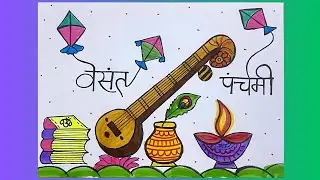 वसंत पंचमी
ॐ